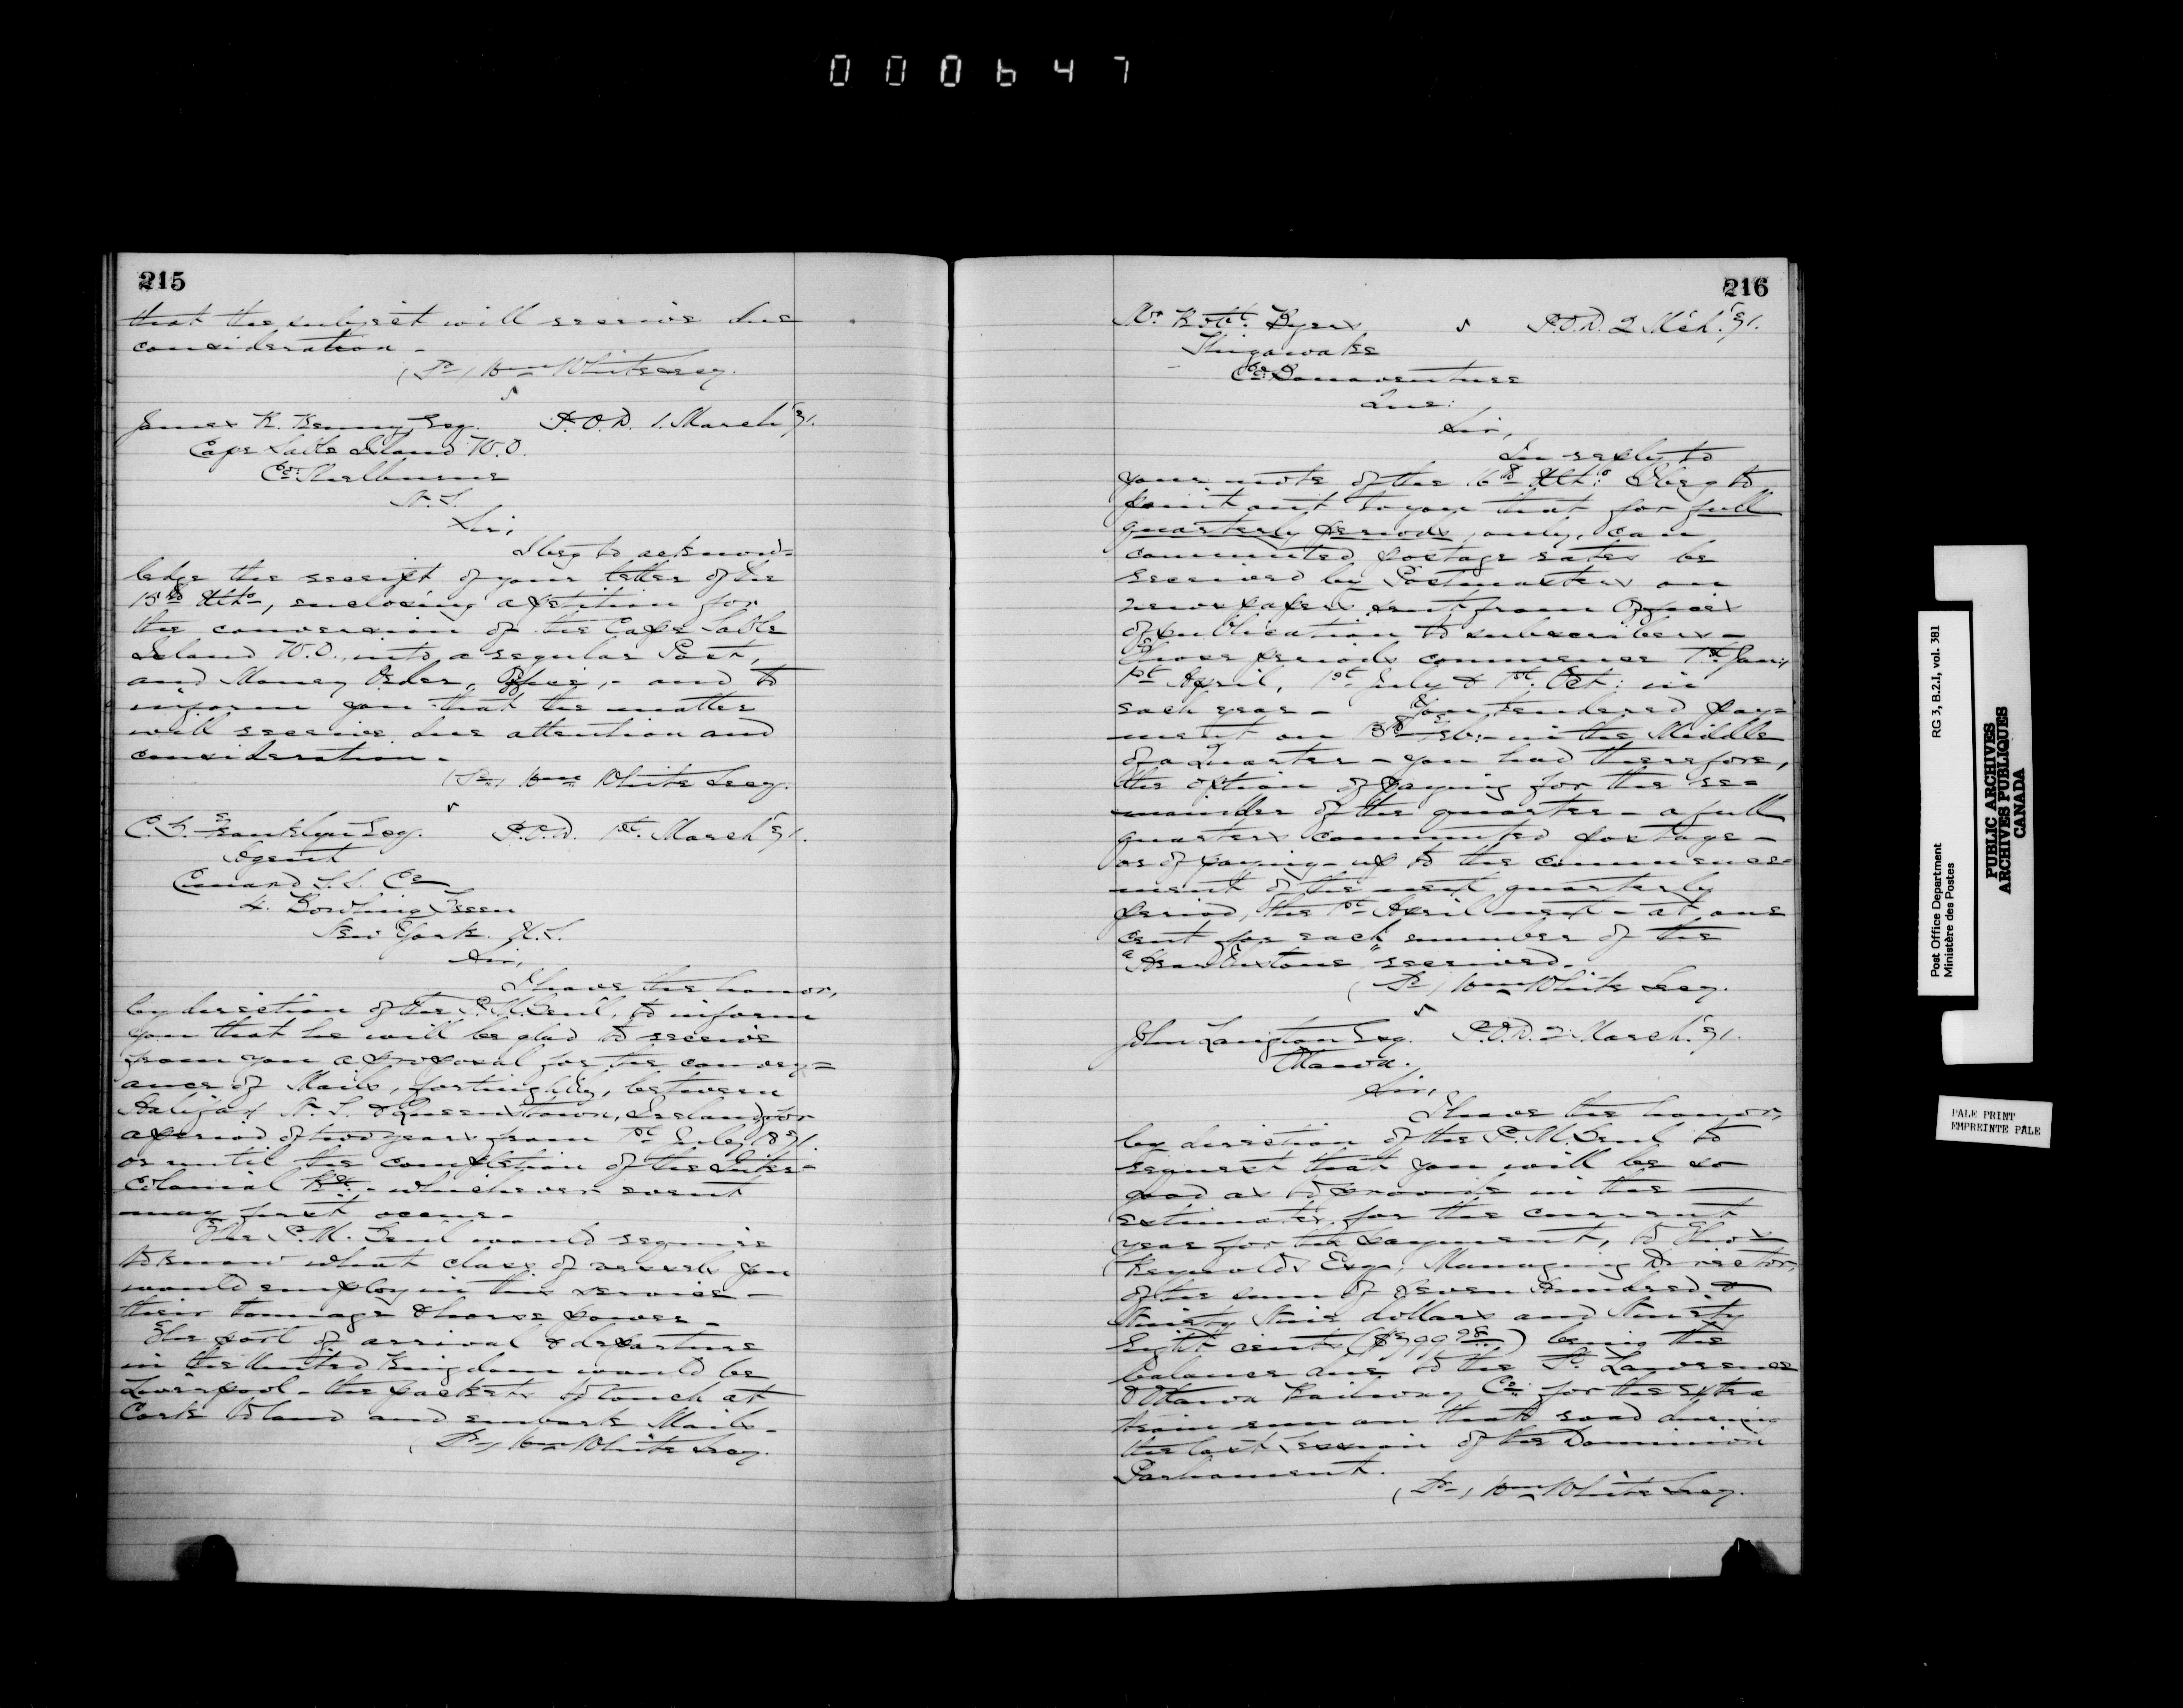 000647
215
that the subject will receive due
consideration -
(Sd) Wm White Secy.
James K. Kenny Esq. P.O.D. 1. March '71.
Cape Sable Island W.O.
Co: Shelburne
N.S.
Sir,
I beg to acknow=
ledge the receipt of your letter of the
15th Ulto, enclosing a petition for
the conversion of the Cape Sable
Island W.O. into a regular Post,
and Money Order, Office, - and to
inform you that the matter
will receive due attention and
consideration -
(Sd) Wm White Secy.
C. G. Franklyn Esq. P.O.D. 1st March '71.
Agent
Cunard S.S. Co
4. Bowling Green
New York. U.S.
Sir,
I have the honor,
by direction of the P.M. Genl, to inform
you that he will be glad to receive
from you a proposal for the convey=
ance of Mails, fortnightly, between
Halifax N.S. & Queenstown, Ireland, for
a period of two years from 1st July 1871
or until the completion of the Inter=
colonial - whichever event
may first occur -
The P.M. Genl would require
to know what class of vessels you
would employ in this service -
their tonnage & horse power -
The port of arrival & departure
in the United Kingdom would be
Liverpool - the packets to touch at
Cork to land and embark Mails -
(Sd) Wm White Secy.
216
Mr Robt. Byers P.O.D. 2 Mch. '71.
Shigawake
Co: Bonaventure
Que:
Sir,
In reply to
your note of the 16th Ulto: I beg to
point out to you that for full
quarterly periods, only, can
commuted postage rates be
received by Postmasters on
newspapers sent from Offices
of publication to subscribers -
Those periods commence 1st Jany
1st April, 1st July & 1st Oct: in
each year - You tendered pay=
ment on Feb: - in the Middle
of a Quarter - you had therefore,
the option of paying for the re=
mainder of the quarter - a full
quarters commuted postage -
or of paying - up to the commence=
ment of the next quarterly
period, the 1st April next - at one
cent for each number of the
"Hearthstone" received -
(Sd) Wm White Secy.
John Langton Esq. P.O.D. 2 March '71.
Ottawa.
Sir,
I have the honor,
by direction of the P.M. Genl to
request that you will be so
good as to provide in the
estimates for the current
year for the payment, to Thos
Reynolds Esqr, Managing Director,
of the sum of Seven Hundred &
Ninety Nine dollars and Ninety
Eight cents ($799 98) being the
balance due to the St Lawrence
& Ottawa Railway Co: for the extra
train run on that road during
the last Session of the Dominion
Parliament.
(Sd) Wm White Secy.
Post Office Department RG 3, B.2.I, vol. 381
Ministère des Postes
PUBLIC ARCHIVES
ARCHIVES PUBLIQUES
CANADA
PALE PRINT
EMPREINTE PALE